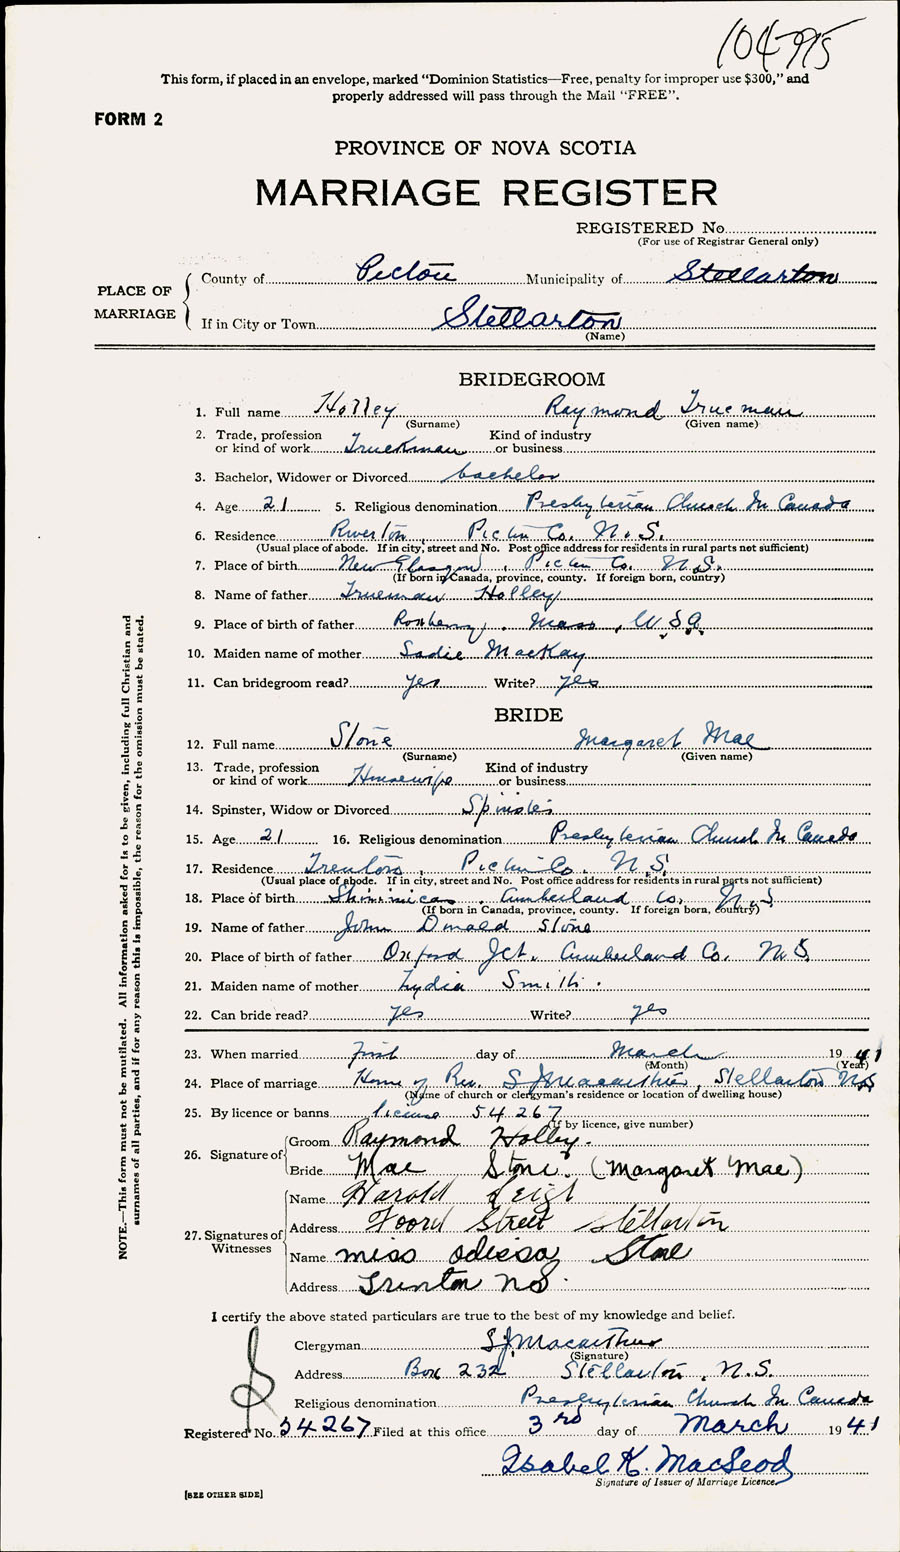 104795
This form, if placed in an envelope, marked "Dominion Statistics—Free, penalty for improper use $300," and
properly addressed will pass through the Mail "FREE".
FORM 2
PROVINCE OF NOVA SCOTIA
MARRIAGE REGISTER
REGISTERED No
(For use of Registrar General only)
PLACE OF MARRIAGE
County of Pictou Municipality of Stellarton
If in City or Town Stellarton
(Name)
BRIDEGROOM
1. Full name Holley Raymond Trueman
(Surname) (Given name)
2. Trade, profession or kind of work Truckman Kind of industry or business
3. Bachelor, Widower or Divorced bachelor
4. Age 21 5. Religious denomination Presbyterian Church In Canada
6. Residence Riverton, Pictou Co. N.S.
(Usual place of abode. If in city, street and No. Post office address for residents in rural parts not sufficient)
7. Place of birth New Glasgow, Pictou Co. N.S.
(If born in Canada, province, county. If foreign born, country)
8. Name of father Trueman Holley
9. Place of birth of father Roxberry, Mass, U.S.A.
10. Maiden name of mother Sadie MacKay
11. Can bridegroom read? yes Write? yes
BRIDE
12. Full name Stone Margaret Mae
(Surname) (Given name)
13. Trade, profession or kind of work Housewife Kind of industry or business
14. Spinster, Widow or Divorced Spinster
15. Age 21 16. Religious denomination Presbyterian Church In Canada
17. Residence Trenton, Pictou Co. N.S.
(Usual place of abode. If in city, street and No. Post office address for residents in rural parts not sufficient)
18. Place of birth Cumberland Co. N.S.
(If born in Canada, province, county. If foreign born, country)
19. Name of father John Donald Stone
20. Place of birth of father Oxford Jct. Cumberland Co. N.S.
21. Maiden name of mother Lydia Smith.
22. Can bride read? yes Write? yes
23. When married first day of March 1941
(Month) (Year)
24. Place of marriage Home of Rev. S J Macarthur, Stellarton N.S
(Name of church or clergyman's residence or location of dwelling house)
25. By licence or banns licence 54267
(If by licence, give number)
26. Signature of
Groom Raymond Holley.
Bride Mae Stone. (Margaret Mae)
27. Signatures of Witnesses
Name Harold Leigh
Address Foord Street Stellarton
Name Miss Odessa Stone
Address Trenton N.S.
NOTE.—This form must not be mutilated. All information asked for is to be given, including full Christian and
surnames of all parties, and if for any reason this is impossible, the reason for the omission must be stated.
I certify the above stated particulars are true to the best of my knowledge and belief.
Clergyman S J Macarthur
(Signature)
Address Box 232 Stellarton, N.S.
Religious denomination Presbyterian Church In Canada
Registered No. 54267 Filed at this office 3rd day of March 1941
Isabel K. MacLeod
Signature of Issuer of Marriage Licence
[SEE OTHER SIDE]